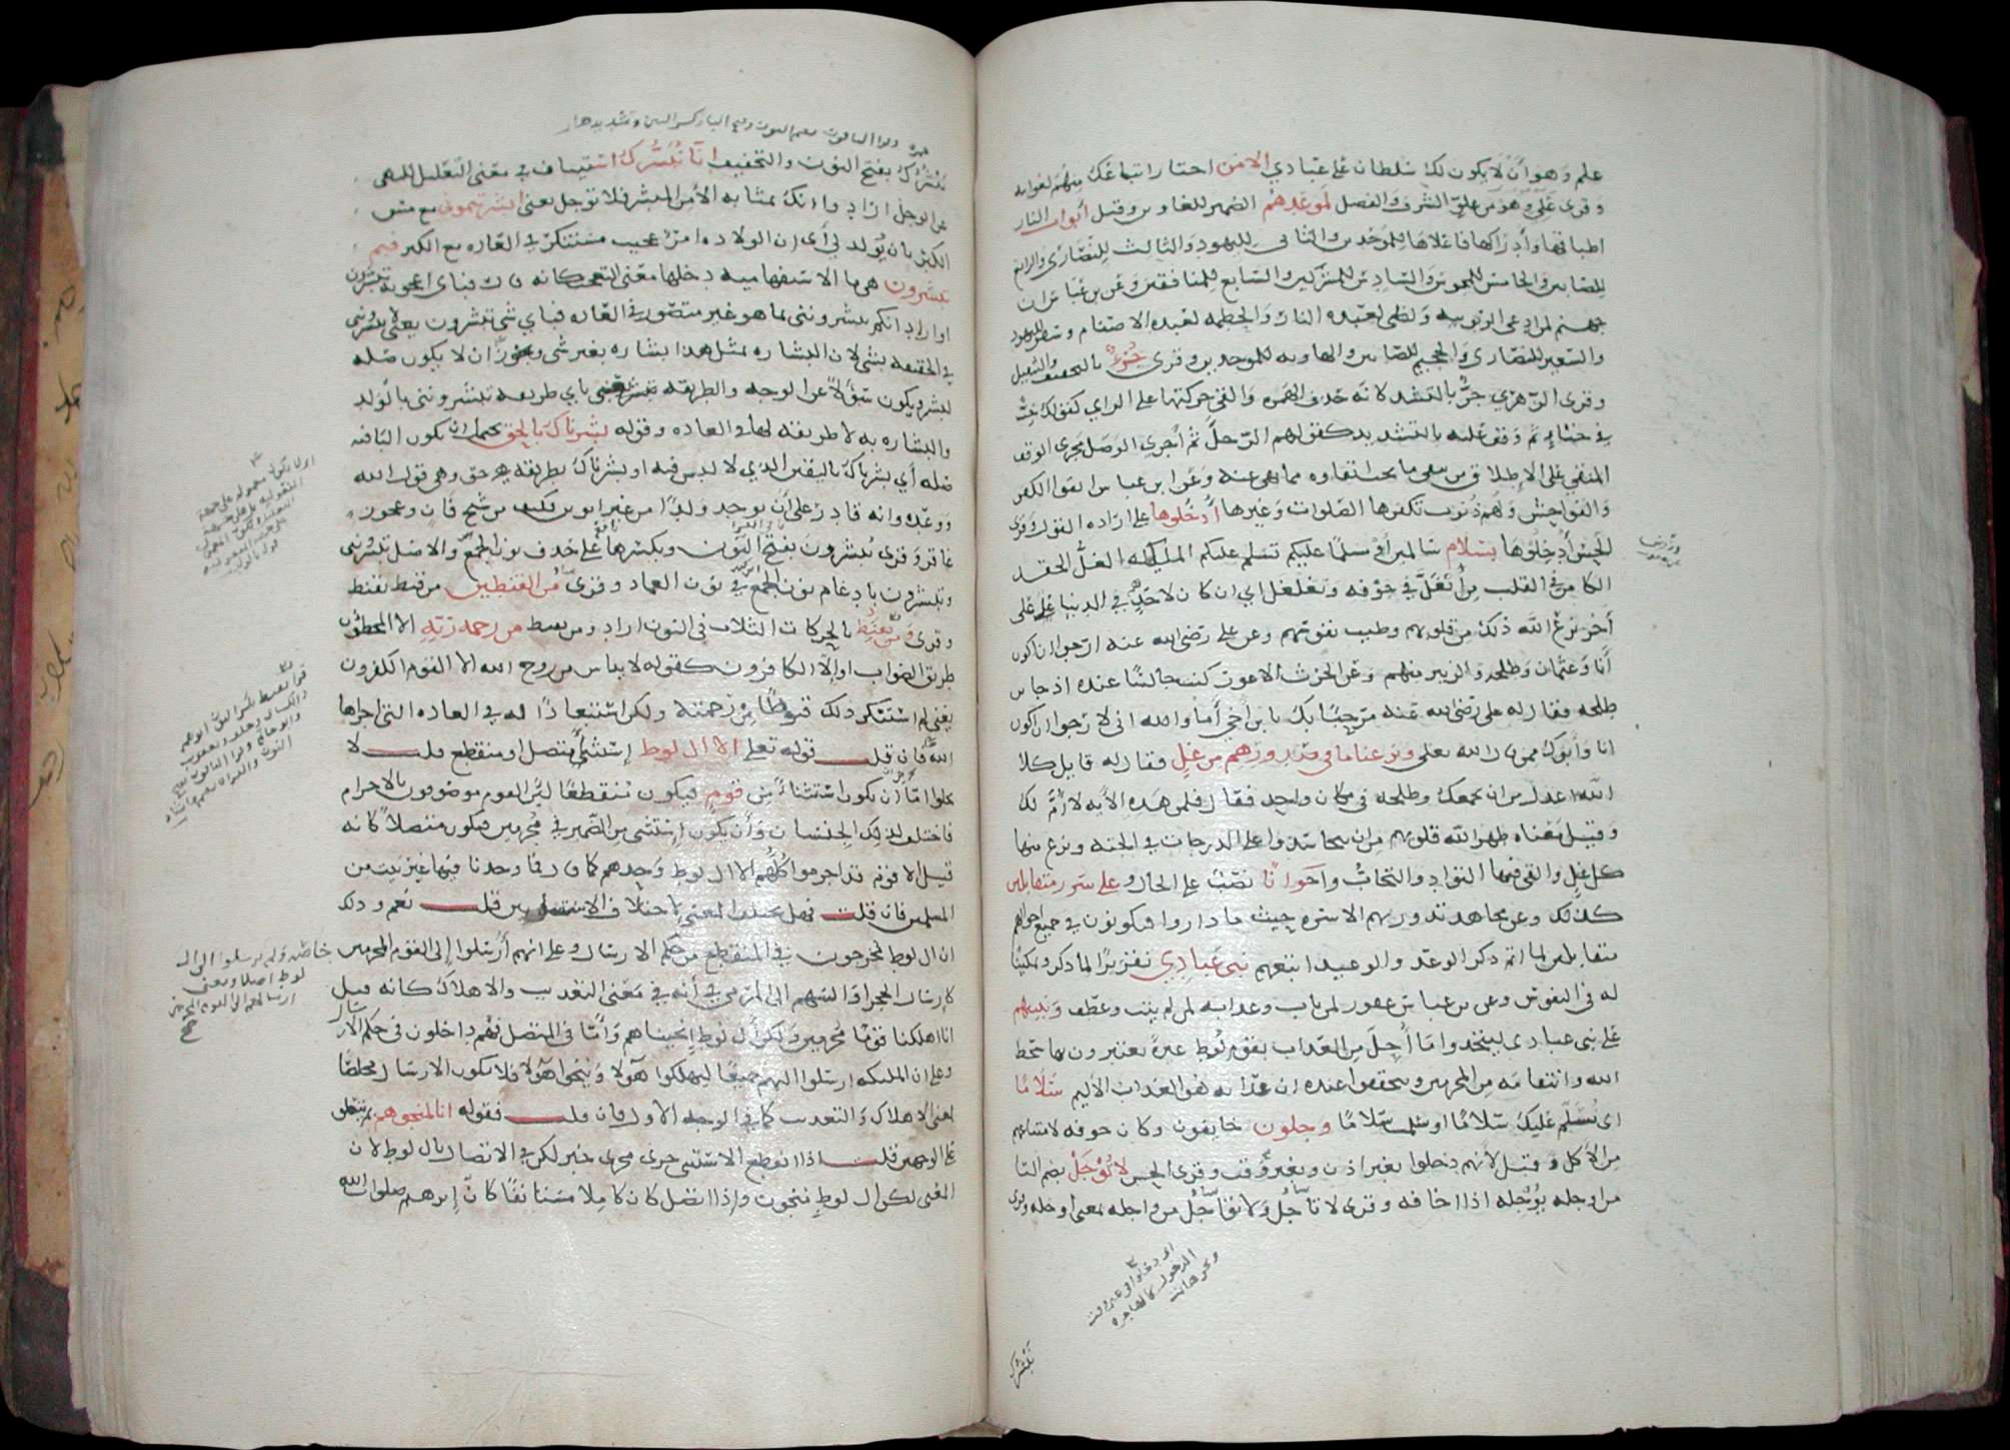 علم وهو أن لا يكون لك سلطان على عبادي الا من اختار اتباعك منهم لغوايته
وقرى علي وهو من علو الشرف والفضل لموعدهم الضمير للغاوين وقيل أبواب النار
اطباقها وأدراكها فاعلاها للموحدين والثاني لليهود والثالث للنصارى والرابع
للصابين والخامس للمجوس والسادس للمشركين والسابع للمنافقين وعن بن عباس ان
جهنم لمن ادعى الربوبية ولظى لعبدة النار والحطمة لعبدة الاصنام وسقر لليهود
والسعير للنصارى والجحيم للصابين والهاوية للموحدين وقرى جزؤ بالتخفيف والتثقيل
وقرى الزهري جز بالتشديد لانه حذف الهمزة وألقى حركتها على الزاي كقولك خب
في خبء ثم وقف عليه بالتشديد كقولهم الرجل ثم أجرى الوصل مجرى الوقف
المتقي على الاطلاق من يتقي ما يجب اتقاوه مما نهي عنه وعن ابن عباس اتقوا الكفر
والفواحش ولهم ذنوب تكفرها الصلوات وغيرها أدخلوها على ارادة القول وقرى
الحسن أدخلوها بسلام سالمين أو مسلما عليكم تسلم عليكم المليكة الغل الحقد
الكامن في القلب من أنغل في جوفه وتغلغل اي ان كان لاحدهم في الدنيا غل على
أخر نزع الله ذلك من قلوبهم وطيب نفوسهم وعن علي رضي الله عنه ارجوا ان اكون
أنا وعثمان وطلحة والزبير منهم وعن الحرث الاعور كنت جالسا عنده اذ جا بن
طلحة فقال له علي رضي الله عنه مرحبا بك يا بن أخي أما والله اني لارجوا ان اكون
انا وأبوك ممن قال الله تعلى ونزعنا ما في صدورهم من غل فقال له قايل كلا
الله اعدل من ان يجمعك وطلحة في مكان واحد فقال فلمن هذه الأية لا أم لك
وقيل معناه طهر الله قلوبهم من ان يتحاسدوا على الدرجات في الجنة ونزع منها
كل غل وألقى فيها التواد والتحاب واخوانا نصب على الحال و على سرر متقابلين
كذلك وعن مجاهد تدور بهم الاسرة حيث ما داروا فيكونون في جميع احوالهم
متقابلين لما اتم ذكر الوعد والوعيد اتبعهم نبي عبادي تقريرا لما ذكر وتمكينا
له في النفوس وعن بن عباس غفور لمن تاب وعذابه لمن لم يتب وعطف ونبيهم
على نبي عبادي ليتخذوا ما أحل من العذاب بقوم لوط عبرة يعتبرون بها سخط
الله وانتقامه من المجرمين ويتحققوا عنده ان عذابه هو العذاب الأليم سلاما
اى نسلم عليك سلاما او سلمت سلاما وجلون خايفون وكان خوفه لامتناعهم
من الأكل وقيل لأنهم دخلوا بغير اذن وبغير وقت وقرى الحسن لا توجل بضم التا
من اوجله يوجله اذا اخافه وقرى لا تاجل ولا تواجل من واجله بمعنى اوجله وقرى
او دخلوا في غير وقت
الدخول
نبشرك
نبشرك بفتح النون والتخفيف انا نبشرك استيناف في معنى التعليل للنهي
عن الوجل اراد وا انك بمثابة الأمن المبشر فلا توجل يعني ابشرتموني مع مس
الكبر بان يولد لي أى ان الولادة امر عجيب مستنكر في العادة مع الكبر فبم
تبشرون هي ما الاستفهامية دخلها معنى التعجب كانه قال فباى اعجوبة تبشرون
او اراد انكم تبشرونني بما هو غير متصور في العادة فباي شي تبشرون يعني لا تبشرونني
في الحقيقة بشي لان البشارة بمثل هذا بشارة بغير شي ويجوز ان لا يكون صلة
لبشر ويكون سؤالا عن الوجه والطريقة يعني باي طريقة تبشرونني بالولد
والبشارة به لا طريقة لها في العادة وقوله بشرناك بالحق يحتمل ان يكون البا فيه
صلة أي بشرناك باليقين الذي لا لبس فيه او بشرناك بطريقة هي حق وهي قول الله
ووعده وانه قادر على أن يوجد ولدا من غير ابوين فكيف من شيخ فان وعجوز
عاقر وقرى تبشرون بفتح النون وبكسرها على حذف نون الجمع والاصل تبشرونني
وتبشرون بادغام نون الجمع في نون العماد وقرى من القنطين من قنط يقنط
وقرى ومن يقنط بالحركات الثلاث في النون اراد ومن يقنط من رحمة ربه الا المخطئون
طريق الصواب او إلا الكافرون كقوله لا يياس من روح الله الا القوم الكفرون
يعني لم استنكر ذلك قنوطا من رحمته ولكن استبعادا له في العادة التي اجراها
الله فان قلت قوله تعلى الا ال لوط إستثنا متصل او منقطع قلت لا
يخلوا اما ان يكون استثناء من قوم فيكون منقطعا لأن القوم موصوفون بالاجرام
فاختلف لذلك الجنسان وأن يكون إستثنى من الضمير في مجرمين فيكون متصلا كانه
قيل الا قوم قد اجرموا كلهم الا ال لوط وحدهم كما قال فما وجدنا فيها غير بيت من
المسلمين فان قلت فهل يختلف المعنى لاختلاف الاستثناين قلت نعم وذلك
ان ال لوط مخرجون في المنقطع من حكم الارسال وعلى انهم أرسلوا إلى القوم المجرمين
خاصة ولم يرسلوا الى ال
لوط اصلا ومعنى
ارسالهم الى القوم المجرمين
كارسال الحجر او السهم الى المرمى في أنه في معنى التعذيب والاهلاك كانه قيل
انا اهلكنا قوما مجرمين ولكن أل لوط إنجيناهم وأما في المتصل فهم داخلون في حكم الارسال
وعلى ان المليكة ارسلوا اليهم جميعا ليهلكوا هولا وينجوا هولا فلا يكون الارسال مخلصا
بمعنى الاهلاك والتعذيب كما في الوجه الأول فان قلت فقوله انا لمنجوهم بم يتعلق
على الوجهين قلت اذا انقطع الاستثنى جرى مجرى خبر لكن في الاتصال بال لوط لان
المعنى لكن ال لوط منجون وإذا اتصل كان كلاما مستانفا كان إبرهيم صلوات الله